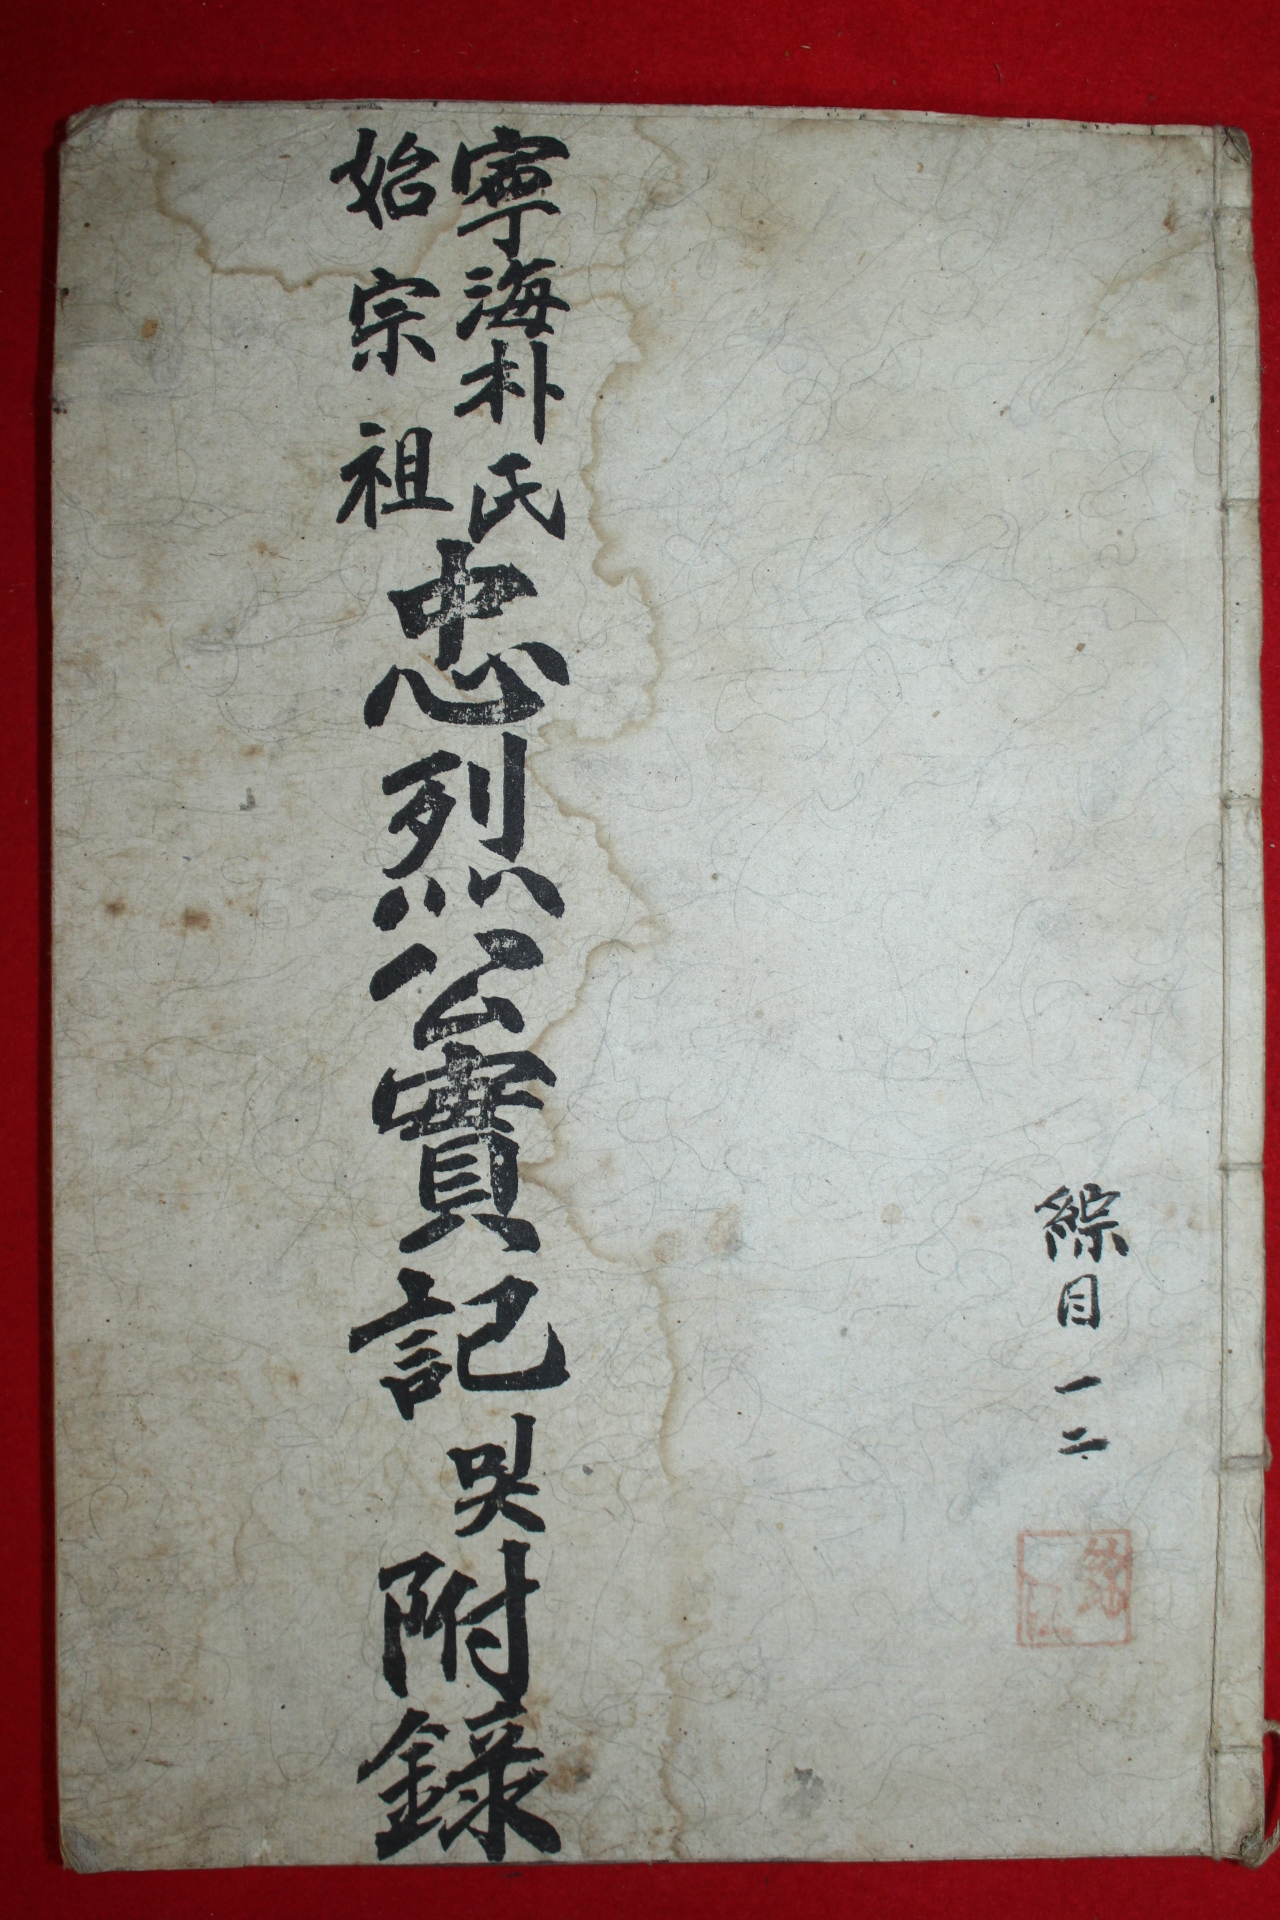 綜目 一二
寧海朴氏
始宗祖
忠烈公實記 및 附錄